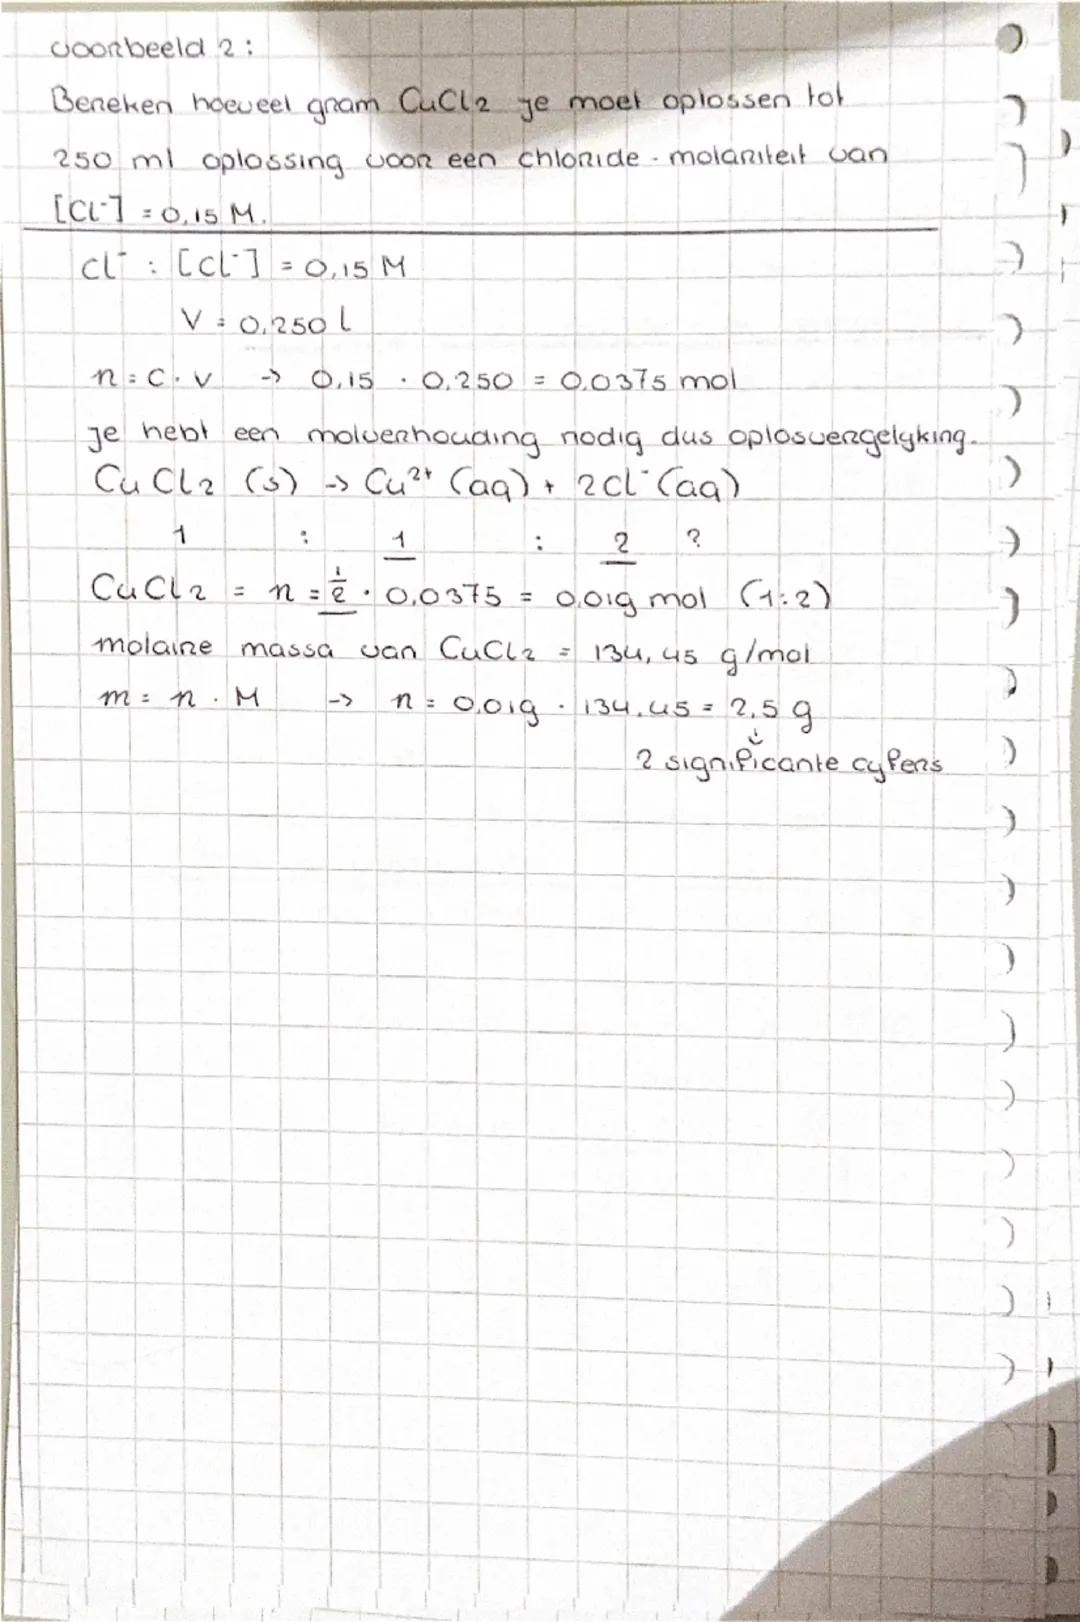 voorbeeld 2:
Bereken hoeveel gram CuCl2 je moet oplossen tot
250 ml oplossing voor een chloride-molariteit van
[Cl-] = 0,15 M.
Cl- : [Cl-] = 0,15 M
V = 0,250 l
n = c . v -> 0,15 . 0,250 = 0,0375 mol
je hebt een molverhouding nodig dus oplosvergelyking.
CuCl2 (s) -> Cu2+ (aq) + 2Cl- (aq)
1 : 1 : 2 ?
CuCl2 = n = 1/2 . 0,0375 = 0,019 mol (1:2)
molaire massa van CuCl2 = 134,45 g/mol
m = n . M -> n = 0,019 . 134,45 = 2,5 g
2 significante cyfers